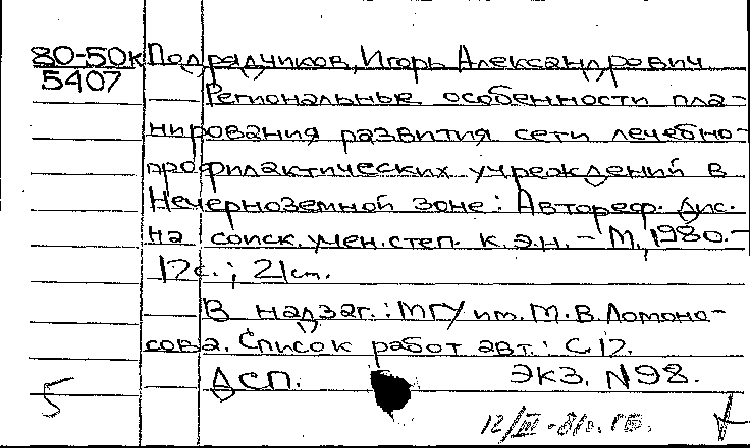 80-50к Подрядчиков, Игорь Александрович
5407
Региональные особенности пла-
нирования развития сети лечебно-
профилактических учреждений в
Нечерноземной зоне: Автореф. дис.
на соиск. учен. степ. к.э.н. - М., 1980. -
17с.; 21см.
В надзаг.: МГУ им. М.В. Ломоно-
сова. Список работ авт.: с. 17.
ДСП. ЭКЗ. N98.
5
12/III-81г.